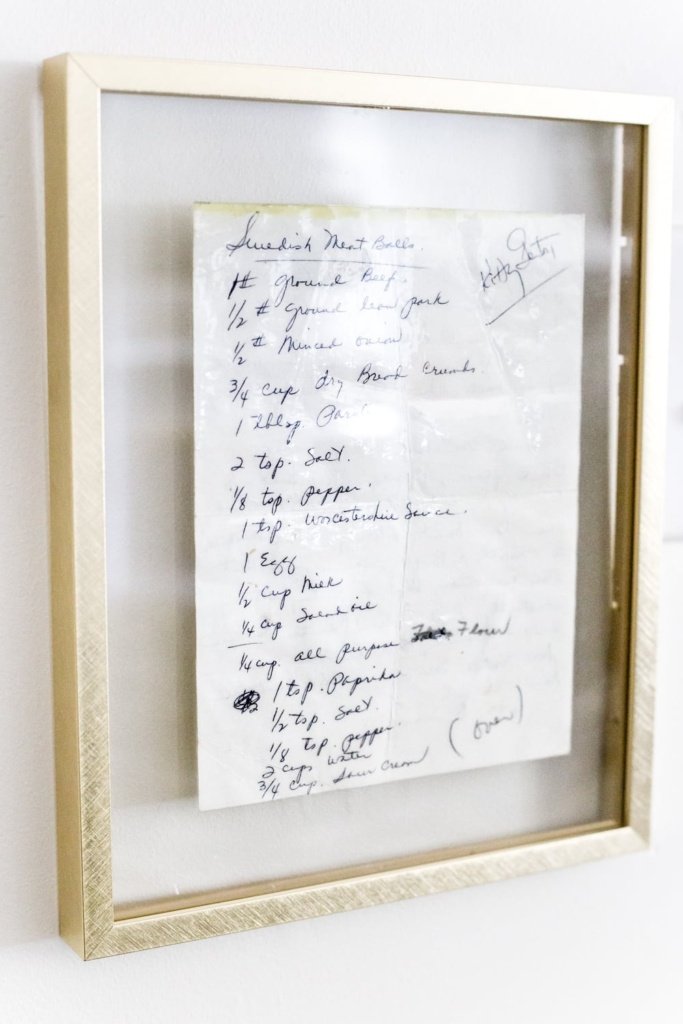 Swedish Meat Balls.
Kitty
1# Ground Beef.
1/2 # Ground lean pork
1/2 # Minced onion
3/4 cup dry Bread Crumbs
1 tblsp.
2 tsp. Salt.
1/8 tsp. pepper.
1 tsp. Worcestershire Sauce.
1 Egg
1/2 cup Milk
1/4 cup Salad oil
1/4 cup. all purpose Flour
1 tsp. Paprika
1/2 tsp. Salt.
1/8 tsp. pepper.
2 cups water
3/4 cup. Sour Cream
(over)